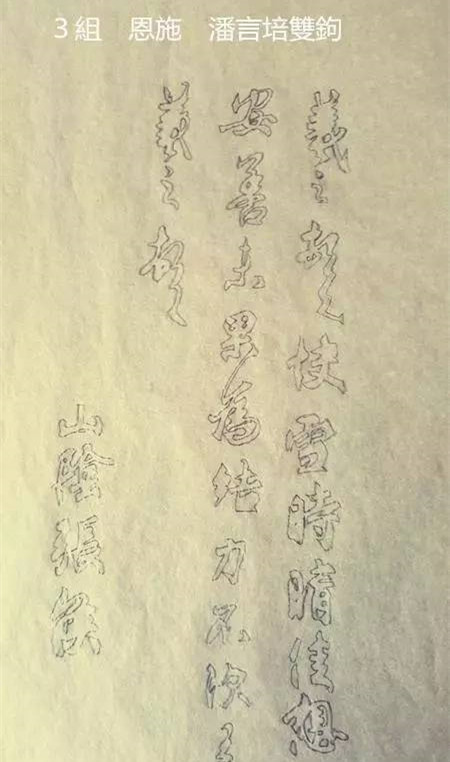 ３組　恩施　潘言培雙鉤
羲之頓首快雪時晴佳想
安善未果為結力不次王
羲之頓首
山陰張侯